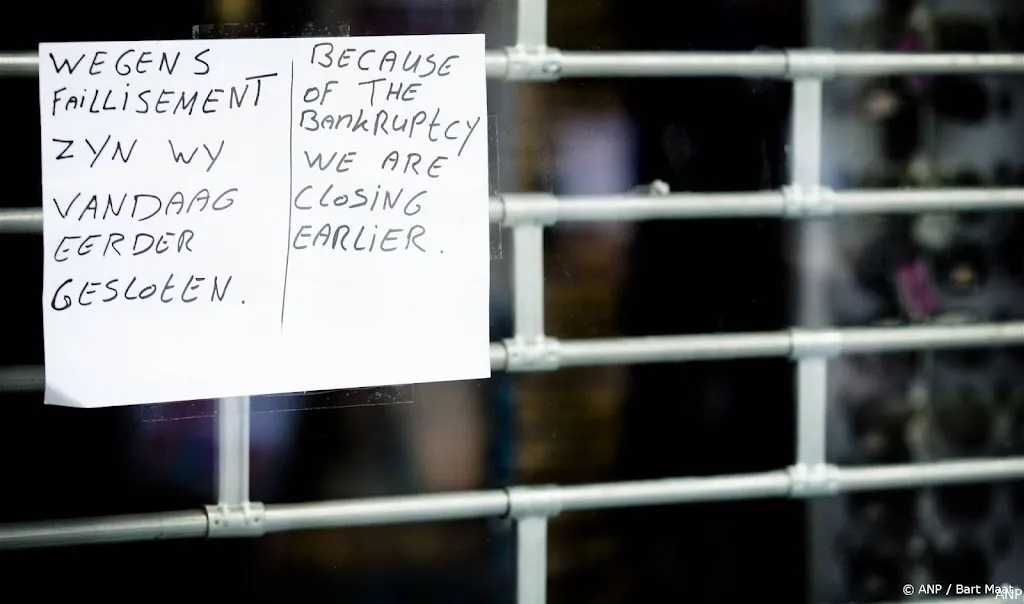 WEGENS
FAILLISEMENT
ZYN WY
VANDAAG
EERDER
GESLOTEN.
BECAUSE
OF THE
BANKRUPTCY
WE ARE
CLOSING
EARLIER.
© ANP / Bart Maat
ANP